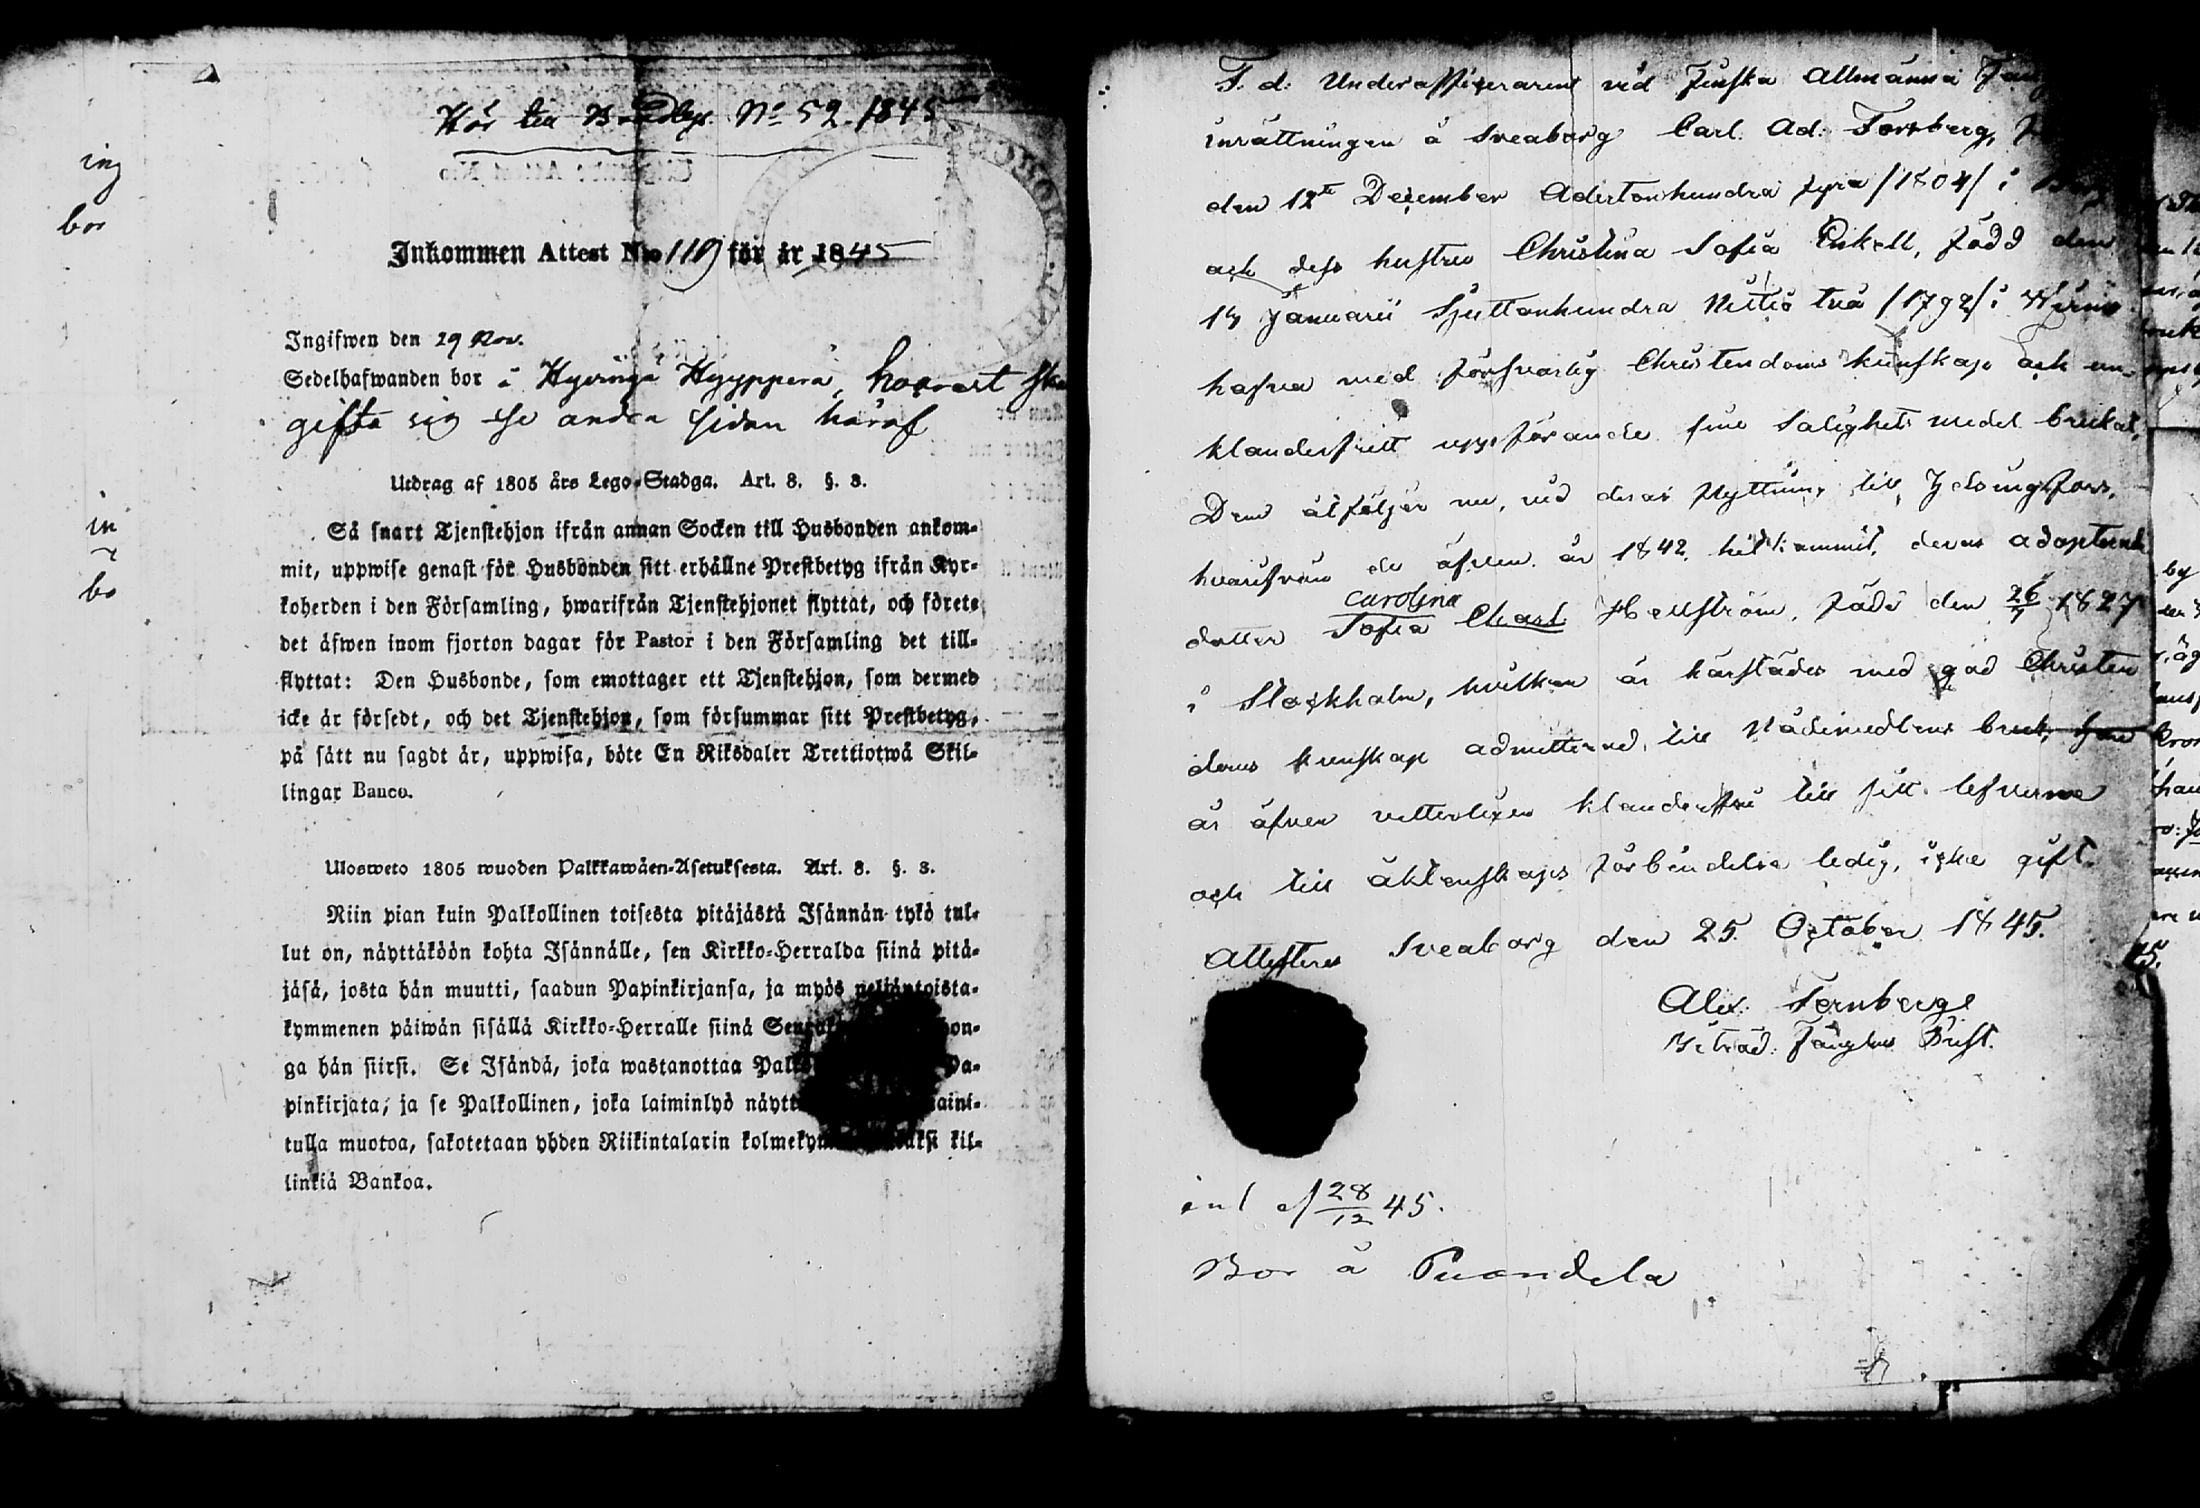 Hör till No 52. 1845
Inkommen Attest No 119 för år 1845
Ingifwen den 29 Nov.
Sedelhafwanden bor i Hyvinge Hyyppärä,
gifta sig se andra sidan häraf
Utdrag af 1805 års Lego-Stadga. Art. 8. §. 3.
Så snart Tjenstehjon ifrån annan Socken till Husbonden ankom-
mit, uppwise genast för Husbonden sitt erhållne Prestbetyg ifrån Kyr-
koherden i den Församling, hwarifrån Tjenstehjonet flyttat, och förete
det äfwen inom fjorton dagar för Pastor i den Församling det till-
flyttat: Den Husbonde, som emottager ett Tjenstehjon, som dermed
icke är försedt, och det Tjenstehjon, som försummar sitt Prestbetyg,
på sätt nu sagdt är, uppwisa, böte En Riksdaler Trettiotwå Skil-
lingar Banco.
Ulosweto 1805 wuoden Palkkawäen-Asetuksesta. Art. 8. §. 3.
Niin pian kuin Palkollinen toisesta pitäjästä Isännän tykö tul-
lut on, näyttäköön kohta Isännälle, sen Kirkko-Herralda siinä pitä-
jäsä, josta hän muutti, saadun Papinkirjansa, ja myös neljäntoista-
kymmenen päiwän sisällä Kirkko-Herralle siinä hon-
ga hän siirsi. Se Isändä, joka wastanottaa Pa-
pinkirjata, ja se Palkollinen, joka laiminlyö maini-
tulla muotoa, sakotetaan yhden Riikintalarin kil-
linkiä Bankoa.
F. d. Underofficeraren vid Finska Allmänna
inrättningen å Sveaborg Carl. Ad: Forsberg,
den 12te December Adertonhundra fyra /1804/ i
och dess hustru Christina Sofia Enkell, född den
13 Januarii Sjuttonhundra Nittio två /1792/ i
hafva med försvarlig Christendoms kunskap och un-
klanderfritt uppförande sine Salighets medel brukat.
Dem åtföljer nu, vid deras flyttning till Helsingfors,
hvarifrån de äfven år 1842 hit kommit, deras adopterade
Carolina
dotter Sofia Charl. Hellström, född den 26/7 1827
i Stockholm, hvilken är härstädes med god Christen
doms kunskap admitterad till Nådemedlens bruk,
är äfven vetterligen klanderfri till sitt lefverne
och till äktenskaps förbindelse ledig, icke gift.
Attesteras Sveaborg den 25. October 1845.
Alex: Fernberg
Biträd: Fångtus Prest.
inl 28/12 45.
Bor å